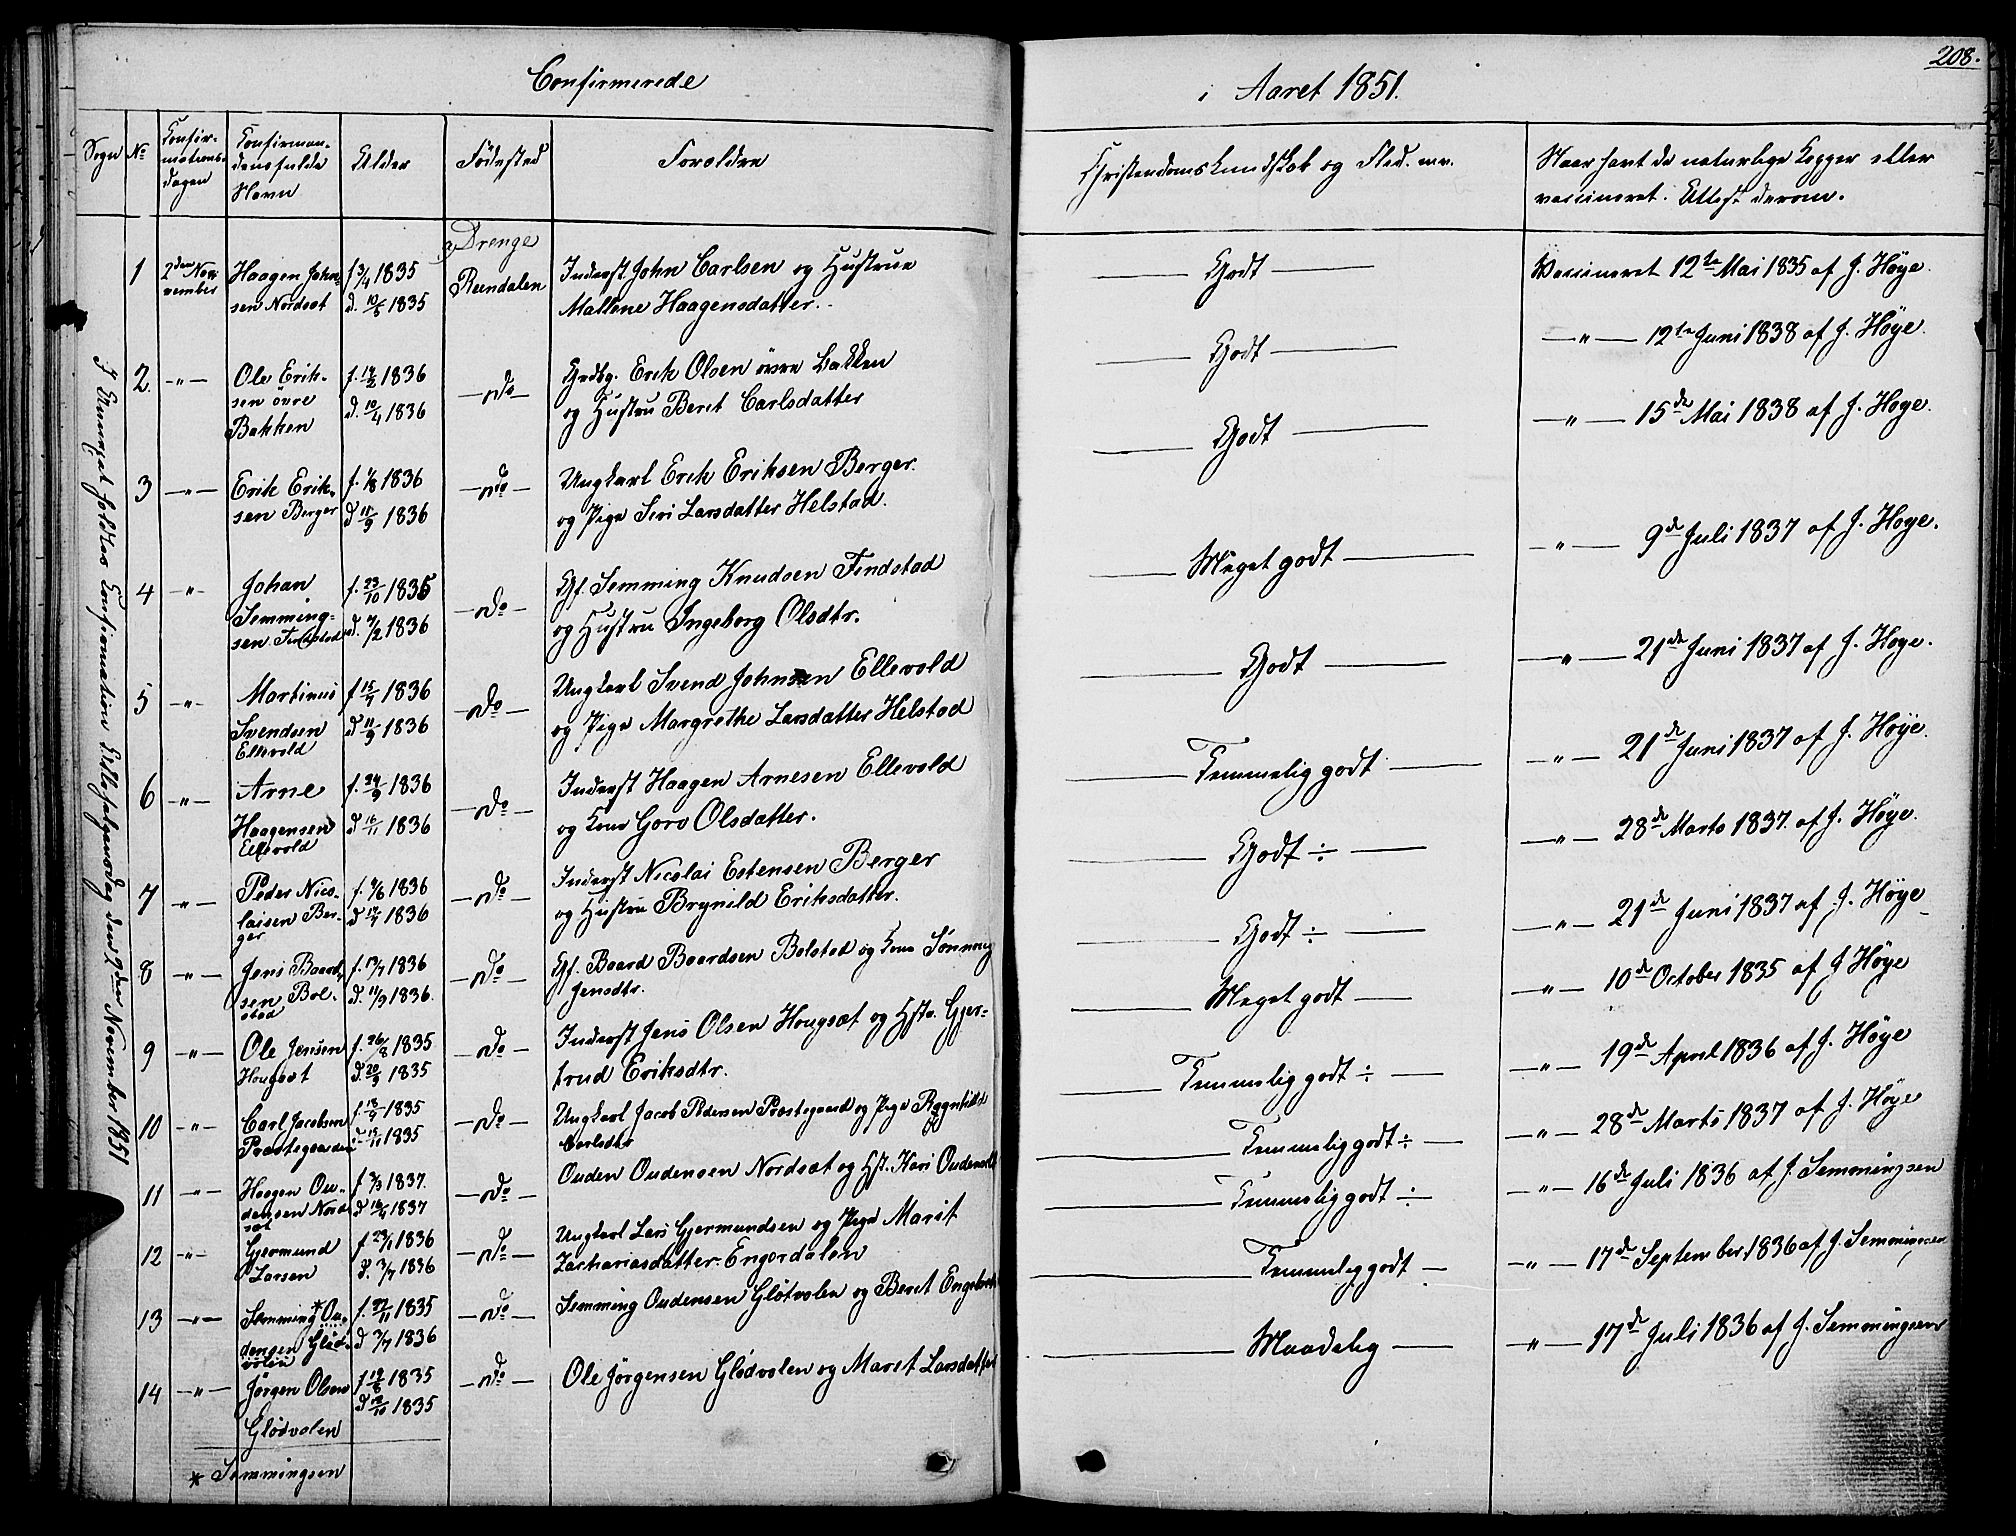 Confirmerede
Sogn
No
Confir-
mations-
dagen
Confirman-
dens fulde
Navn
Alder
Födested
Foreldre
a) Drenge
1
2den No-
vember
Haagen John-
sen Nordset
f 3/4 1835
d. 10/5 1835
Rendalen
Inderst John Carlsen og Hustrue
Mallene Haagensdatter.
2.
-"-
Ole Erik-
sen övre
Bakken
f. 14/2 1836
d. 10/4 1836
-do-
Grdbg. Erik Olsen övre Bakken
og Hustru Beret Carlsdatter
3
-"-
Erik Erik-
sen Berger
f. 1/8 1836
d 11/9 1836
-do-
Ungkarl Erik Eriksen Berger.
og Pige Siri Larsdatter Helstad.
4
-"-
Johan
Semming-
sen Findstad
f. 23/10 1835
d. 7/2 1836
-do-
Gf. Semming Knudsen Findstad
og Hustru Ingeborg Olsdtr.
5
-"-
Martinus
Svendsen
Ellevold
f 15/7 1836
d 11/9 1836
-do-
Ungkarl Svend Johnsen Ellevold
og Pige Margrethe Larsdatter Helstad
6
-"-
Arne
Haagensen
Ellevold
f. 24/9 1836
d 16/11 1836
-do-
Inderst Haagen Arnesen Ellevold
og Kone Goro Olsdatter.
7
-"-
Peder Nico-
laisen Ber-
ger
f. 9/6 1836
d 17/7 1836
-do-
Inderst Nicolai Estensen Berger
og Hustru Brynild Eriksdatter.
8
-"-
Jens Baard-
sen Bol-
stad
f. 17/7 1836
d. 11/9 1836.
-do-
Gf. Baard Baardsen Bolstad og Kone Sönnoug
Jensdtr.
9
-"-
Ole Jensen
Hougset
f. 26/8 1835
d. 20/9 1835
-do-
Inderst Jens Olsen Hougset og Hstr. Gjer-
trud Eriksdtr.
10
-"-
Carl Jacobsen
Præstegaarden
f. 18/9 1835
d. 15/11 1835
-do-
Ungkarl Jacob Pedersen Præstegaard og Pige Ragnhild
Carlsdtr
11
-"-
Haagen Ou-
densen Nord-
set
f 3/3 1837.
d 16/4 1837
-do-
Ouden Oudensen Nordset og Hst. Kari
12
-"-
Gjermund
Larsen
f 23/1 1836
d. 3/7 1836
-do-
Ungkarl Lars Gjermundsen og Pige Marit
Zachariasdatter Engerdalen
13
-"-
Semming* Ou-
densen Glöt-
volen
f. 27/11 1835
d 3/7 1836
-do-
Semming Oudensen Glötvolen og Beret
14
-"-
Jörgen Olsen
Glödvolen
f 19/8 1835
d 18/10 1835
-do-
Ole Jörgensen Glödvolen og Maret Larsdatter
* Semmingsen
I Elvrejæt holdtes Confirmation Allehelgensdag den 2den November 1851
208.
i Aaret 1851.
Christendomskundskab og Flid. mv.
Naar havt de naturlige Kopper eller
vaccineret. Attest derom.
Godt
Vaccineret 12te Mai 1835 af J. Höye.
Godt
-"- 12te Juni 1838 af J. Höye.
Godt
-"- 15de Mai 1838 af J. Höye.
Meget godt
-"- 9de Juli 1837 af J. Höye.
Godt
-"- 21de Juni 1837 af J. Höye.
Temmelig godt
-"- 21de Juni 1837 af J. Höye.
Godt ÷
-"- 28de Marts 1837. af J. Höye.
Godt ÷
-"- 21de Juni 1837 af J. Höye
Meget godt
-"- 10de October 1835 af J Höye
Temmelig godt ÷
-"- 19de April 1836 af J. Höye
Temmelig godt ÷
-"- 28de Marts 1837 af J. Höye
Temmelig godt ÷
-"- 16de Juli 1836 af J. Semmingsen
Temmelig godt
-"- 17de September 1836 af J. Semmingsen
Maadelig
-"- 17de Juli 1836 af J. Semmingsen